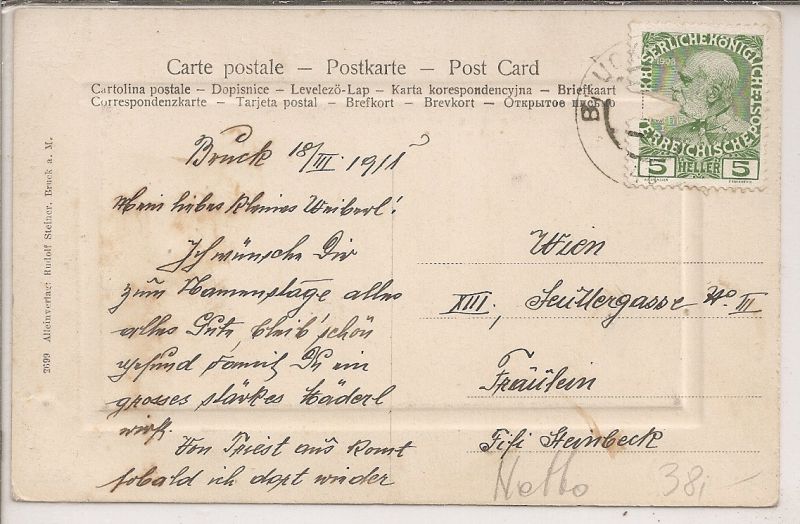 Carte postale — Postkarte — Post Card
Cartolina postale — Dopisnice — Levelező-Lap — Karta korespondencyjna — Briefkaart
Correspondenzkarte — Tarjeta postal — Brefkort — Brevkort — Открытое письмо
KAISERLICHEKÖNIGLICHE
ÖSTERREICHISCHE POST
1908
5 HELLER 5
BRUCK
Bruck 18/III. 1911
Mein liebes kleines Weiberl!
Ich wünsche Dir
zum Namenstage alles
alles Gute, bleib' schön
gesund damit Du ein
grosses starkes Mäderl
wirst.
Von Triest aus komt
sobald ich dort wieder
Wien
XIII, Seuttergasse No III
Fräulein
Fifi Steinbeck
Netto 38,-
2699 Alleinverlag: Rudolf Steiner, Bruck a. M.